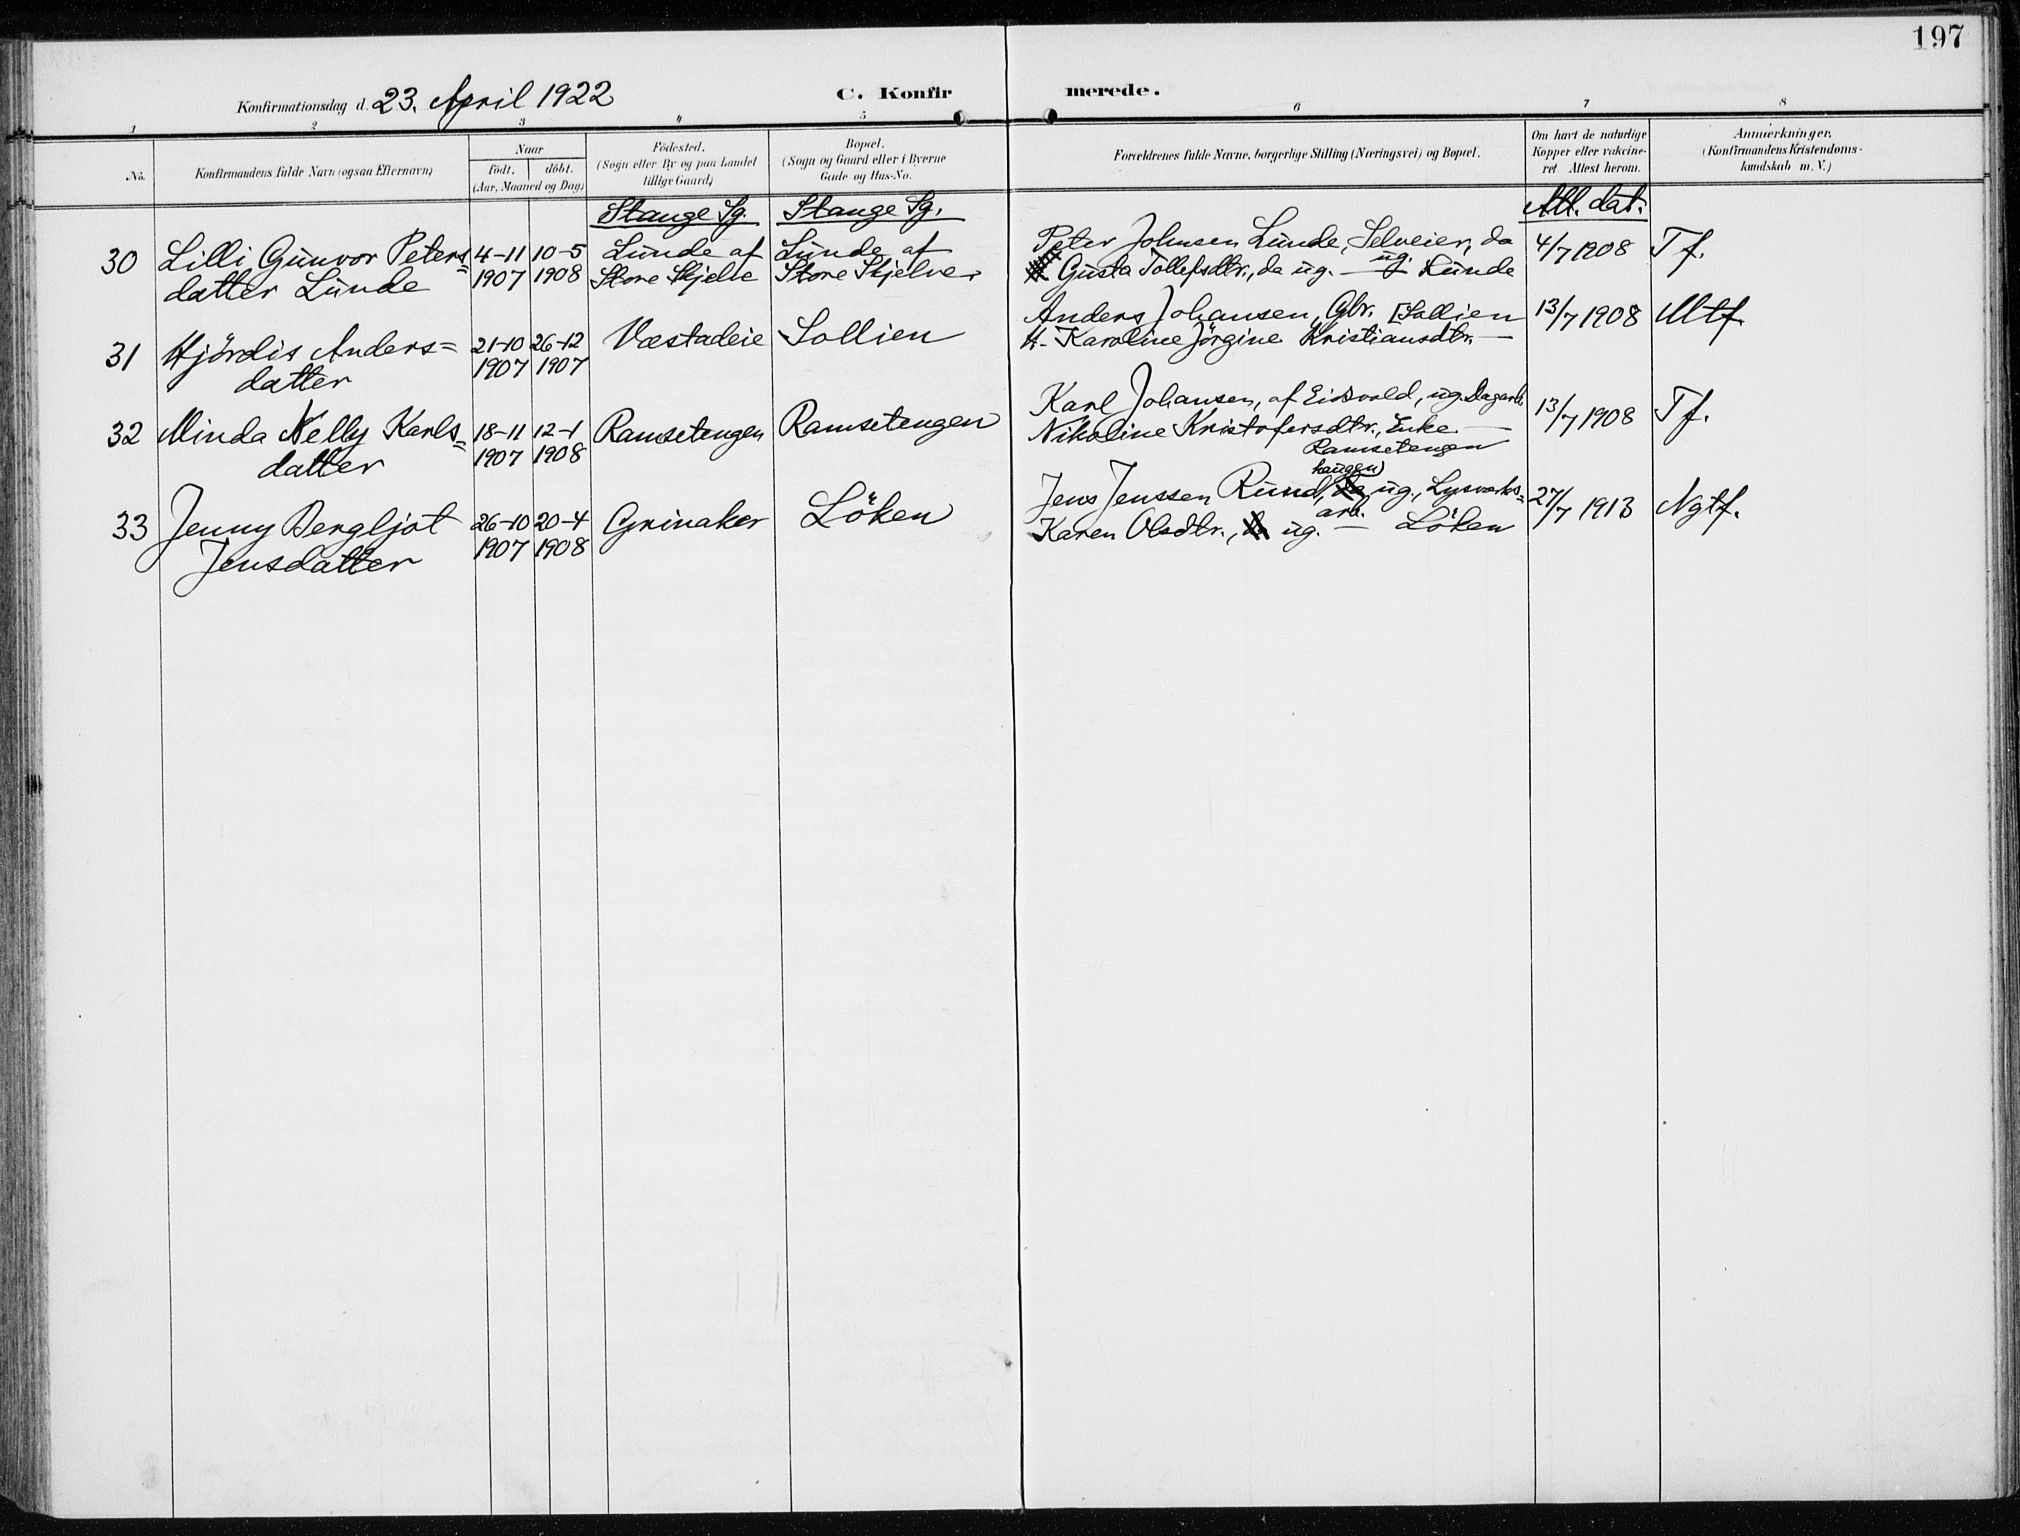 197
Konfirmationsdag d. 23. April 1922
C. Konfirmerede.
1 2 3 4 5 6 7 8
No.
Konfirmandens fulde Navn (ogsaa Efternavn)
Naar
født. døbt.
(Aar, Maaned og Dag)
Fødested.
(Sogn eller By og paa Landet
tillige Gaard)
Bopæl.
(Sogn og Gaard eller i Byerne
Gade og Hus-No.
Forældrenes fulde Navne, borgerlige Stilling (Næringsvei) og Bopæl.
Om havt de naturlige
Kopper eller vakcine-
ret Attest herom.
Anmærkninger.
(Konfirmandens Kristendoms-
kundskab m. V.)
Stange Sg. Stange Sg. Att. dat.
30 Lilli Gunvor Peters= 4-11 10-5 Lunde af Lunde af Peter Johnsen Lunde, Selveier, da ug. 4/7 1908 Tf.
datter Lunde 1907 1908 Store Skjelve Store Skjelve Gusta Tollefsdtr., da ug. — Lunde
31 Hjørdis Anders= 21-10 26-12 Væstadeie Sollien Anders Johansen, Gbr. [Sollien 13/7 1908 Mtf.
datter 1907 1907 H. Karoline Jörgine Kristiansdtr. —
32 Minda Nelly Karls= 18-11 12-1 Ramsetengen Ramsetengen Karl Johansen, af Eidsvold, ug. Dagarb. 13/7 1908 Tf.
datter 1907 1908 Nikoline Kristofersdtr., Enke —
Ramsetengen
33 Jenny Bergljot 26-10 20-4 Grinaker Löken Jens Jenssen Rund, (haugen) ug., Lysverks= 27/7 1913 Ngtf.
arb.
Jensdatter 1907 1908 Karen Olsdtr., ug. — Löken